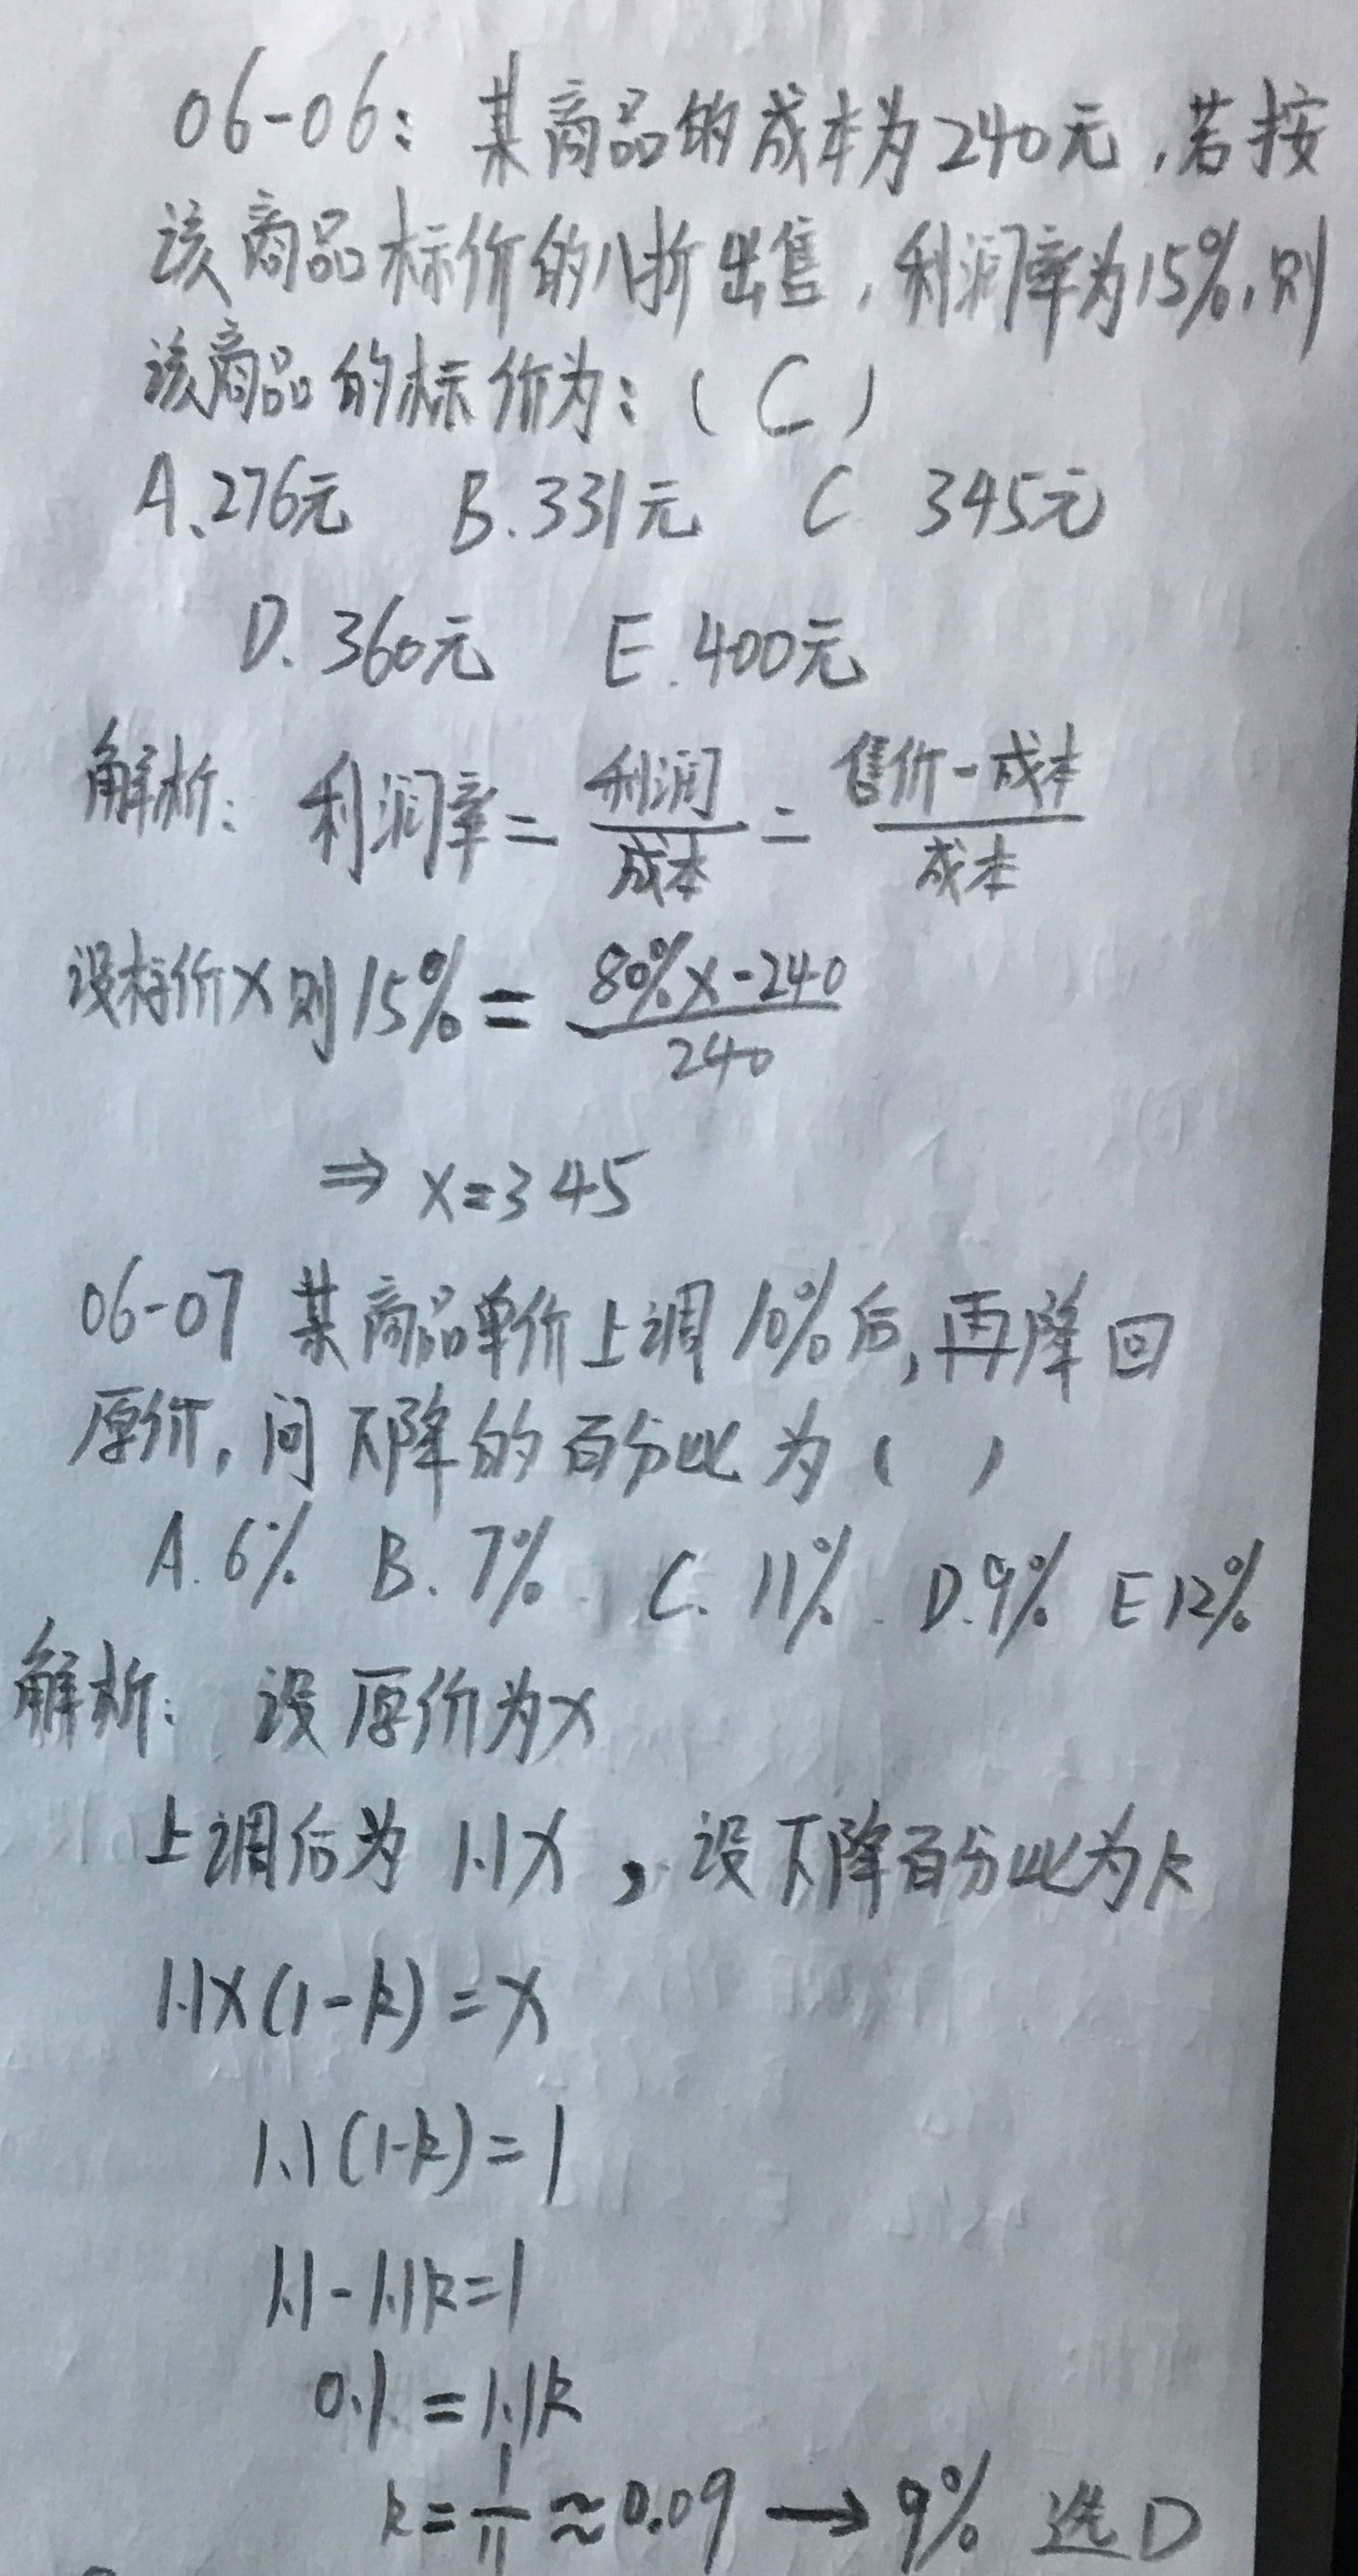 06-06：某商品的成本为240元，若按
该商品标价的八折出售，利润率为15%，则
该商品的标价为：（ C ）
A、276元 B.331元 C 345元
D. 360元 E.400元
解析：利润率=利润/成本=售价-成本/成本
设标价x则15%=80%x-240/240
⇒ x=345
06-07 某商品单价上调10%后，再降回
原价，问下降的百分比为（ ）
A.6% B.7% C. 11% D.9% E12%
解析：设原价为x
上调后为1.1x，设下降百分比为k
1.1x(1-k)=x
1.1(1-k)=1
1.1-1.1k=1
0.1=1.1k
k=1/11≈0.09→9% 选D